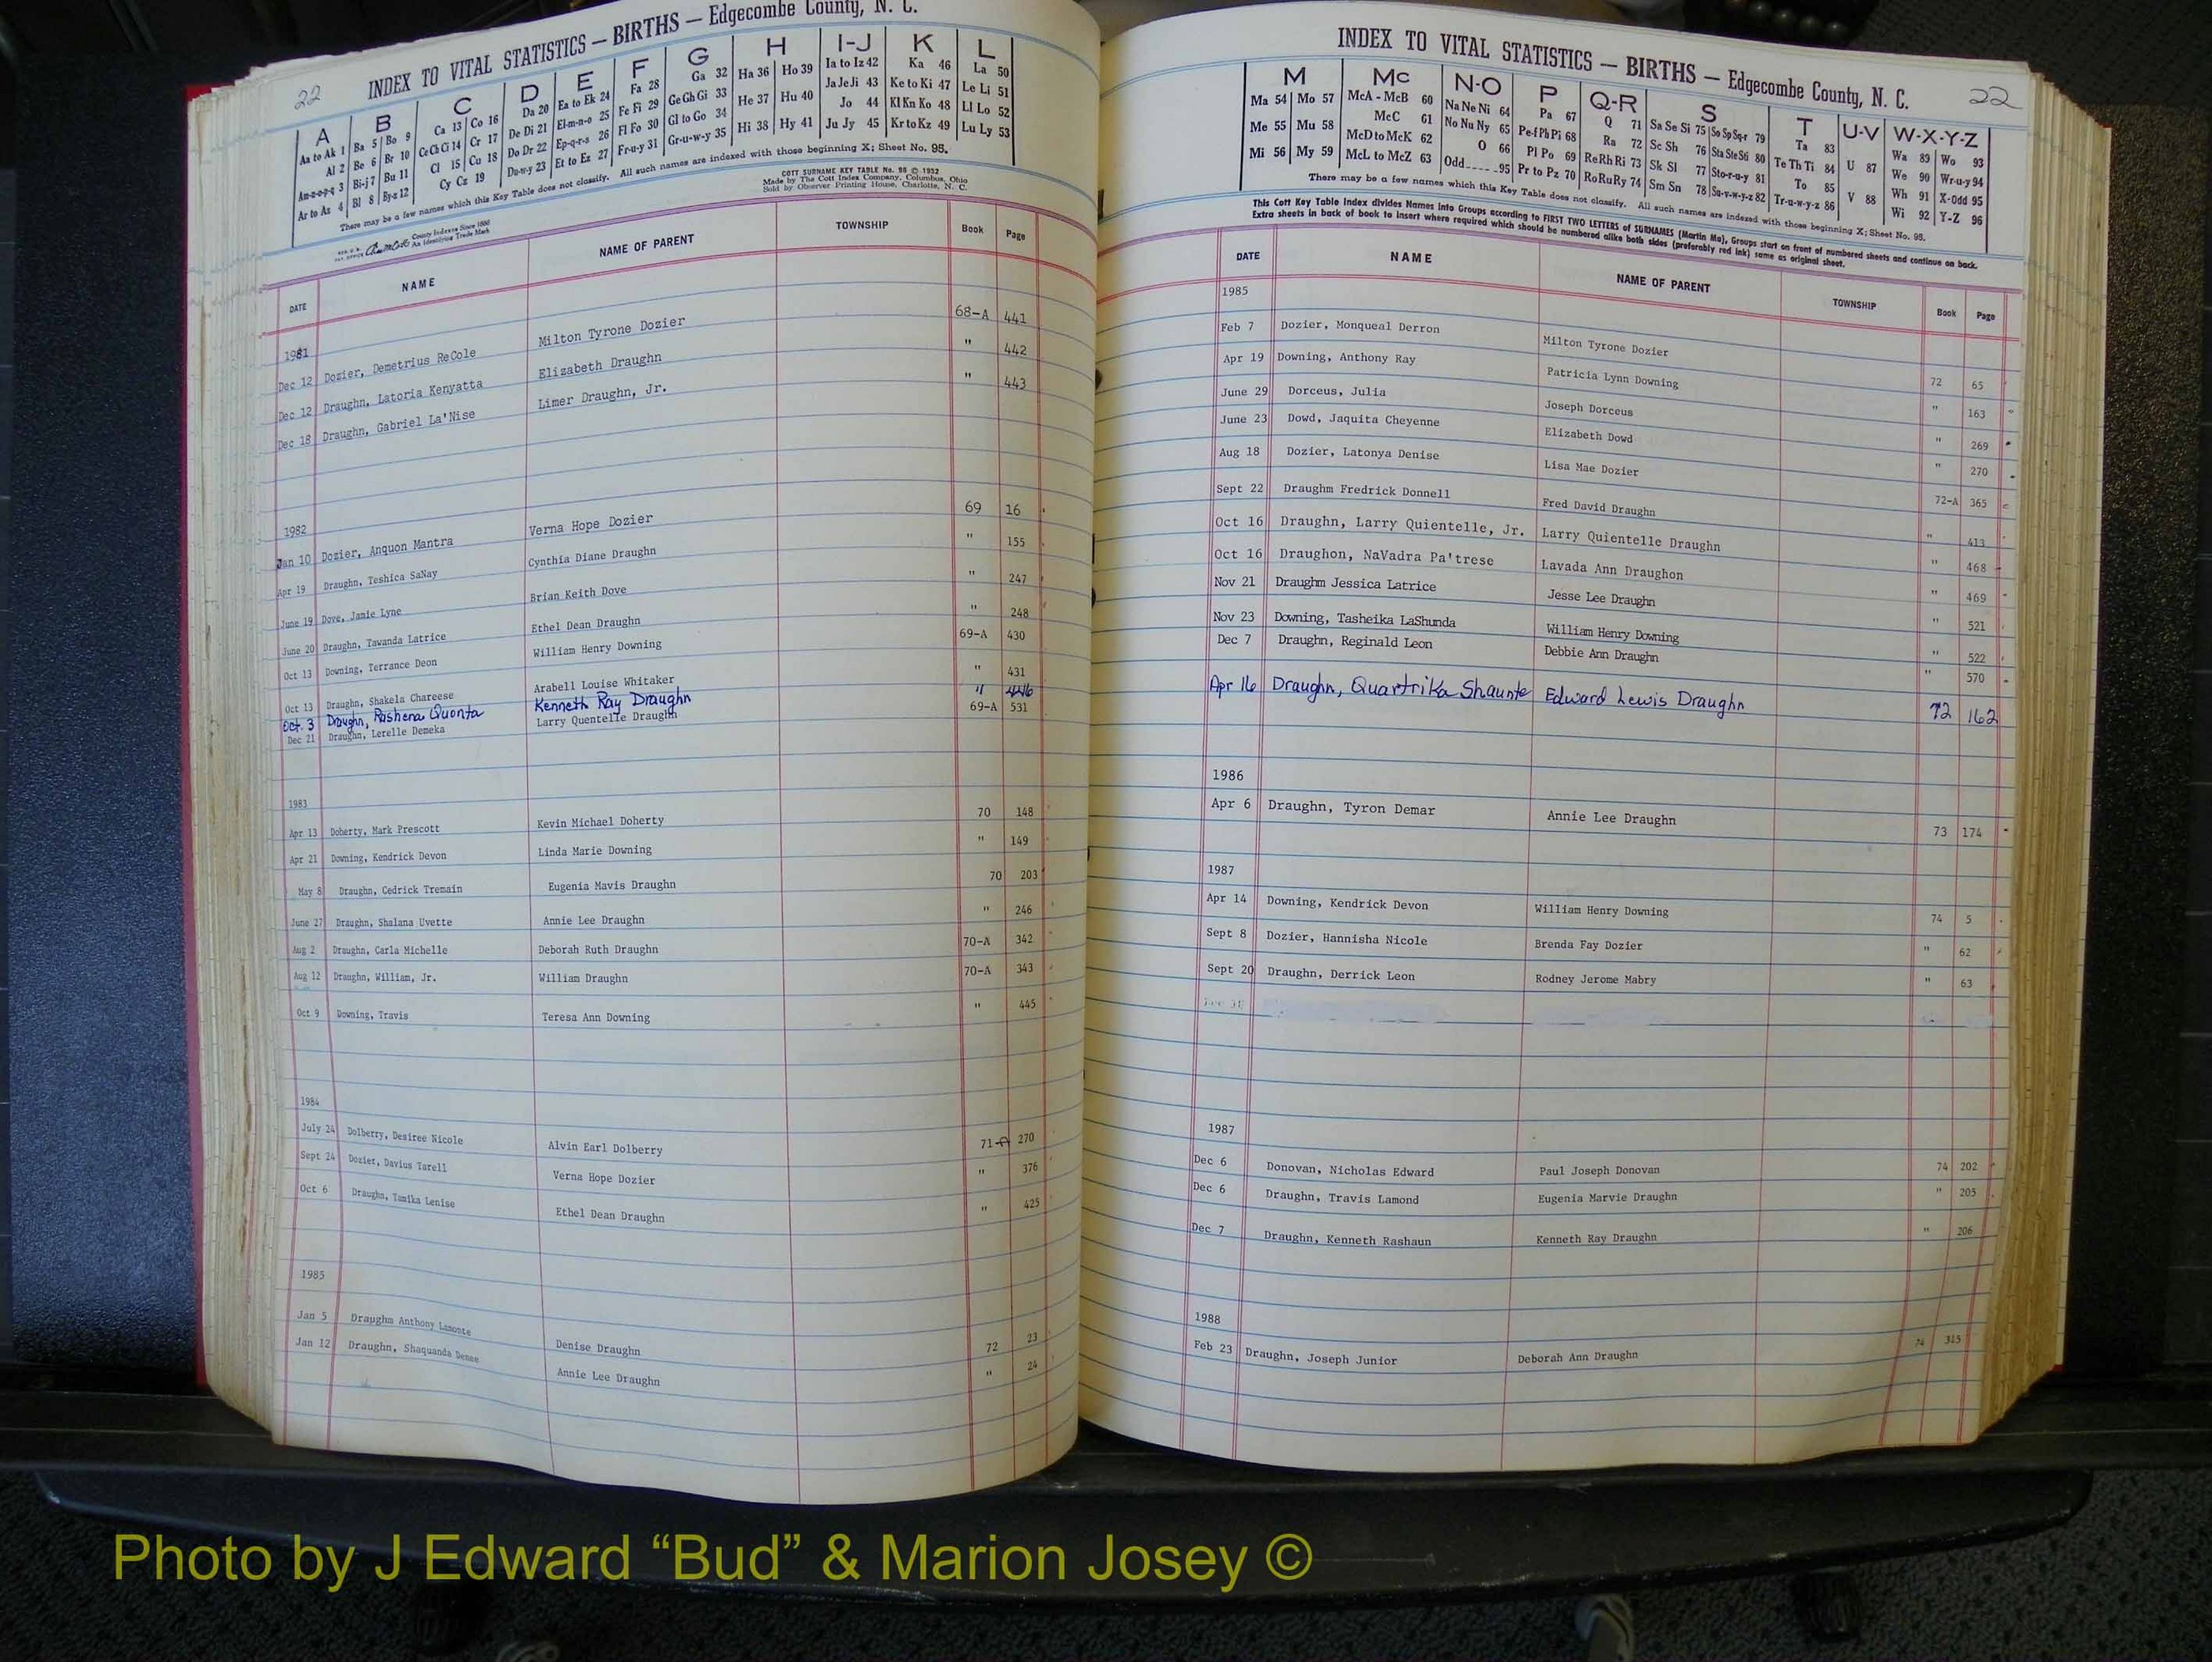 22
INDEX TO VITAL STATISTICS — BIRTHS — Edgecombe County, N. C.
A B C D E F G H I-J K L
Aa to Ak 1 Ba 5 Bo 9 Ca 13 Co 16 Da 20 Ea to Ek 24 Fa 28 Ga 32 Ha 36 Ho 39 Ia to Iz 42 Ka 46 La 50
Al 2 Be 6 Br 10 Ce Ch Ci 14 Cr 17 De Di 21 El-m-n-o 25 Fe Fi 29 Ge Gh Gi 33 He 37 Hu 40 Ja Je Ji 43 Ke to Ki 47 Le Li 51
An-z-o-p-q 3 Bi-j 7 Bu 11 Cl 15 Cu 18 Do Dr 22 Ep-q-r-s 26 Fl Fo 30 Gl to Go 34 Hi 38 Hy 41 Jo 44 Kl Kn Ko 48 Ll Lo 52
Ar to Az 4 Bl 8 By-z 12 Cy Cz 19 Du-w-y 23 Et to Ez 27 Fr-u-y 31 Gr-u-w-y 35 Ju Jy 45 Kr to Kz 49 Lu Ly 53
There may be a few names which this Key Table does not classify. All such names are indexed with those beginning X; Sheet No. 95.
COTT SURNAME KEY TABLE No. 96 © 1932
Made by The Cott Index Company, Columbus, Ohio
Sold by Observer Printing House, Charlotte, N. C.
County Indexes Since 1888
An Identifying Trade Mark
DATE NAME NAME OF PARENT TOWNSHIP Book Page
1981
Dec 12 Dozier, Demetrius ReCole Milton Tyrone Dozier 68-A 441
Dec 12 Draughn, Latoria Kenyatta Elizabeth Draughn " 442
Dec 18 Draughn, Gabriel La'Nise Limer Draughn, Jr. " 443
1982
Jan 10 Dozier, Anquon Mantra Verna Hope Dozier 69 16
Apr 19 Draughn, Teshica SaNay Cynthia Diane Draughn " 155
June 19 Dove, Janie Lyne Brian Keith Dove " 247
June 20 Draughn, Tawanda Latrice Ethel Dean Draughn " 248
Oct 13 Downing, Terrance Deon William Henry Downing 69-A 430
Oct 13 Draughn, Shakela Chareese Arabell Louise Whitaker " 431
Oct. 3 Draughn, Rashena Quonta Kenneth Ray Draughn " 446
Dec 21 Draughn, Lerelle Demeka Larry Quentelle Draughn 69-A 531
1983
Apr 13 Doherty, Mark Prescott Kevin Michael Doherty 70 148
Apr 21 Downing, Kendrick Devon Linda Marie Downing " 149
May 8 Draughn, Cedrick Tremain Eugenia Mavis Draughn 70 203
June 27 Draughn, Shalana Uvette Annie Lee Draughn " 246
Aug 2 Draughn, Carla Michelle Deborah Ruth Draughn 70-A 342
Aug 12 Draughn, William, Jr. William Draughn 70-A 343
Oct 9 Downing, Travis Teresa Ann Downing " 445
1984
July 24 Dolberry, Desiree Nicole Alvin Earl Dolberry 71-A 270
Sept 24 Dozier, Davius Tarell Verna Hope Dozier " 376
Oct 6 Draughn, Tamika Lenise Ethel Dean Draughn " 425
1985
Jan 5 Draughm Anthony Lamonte Denise Draughn 72 23
Jan 12 Draughn, Shaquanda Denee Annie Lee Draughn " 24
INDEX TO VITAL STATISTICS — BIRTHS — Edgecombe County, N. C. 22
M Mc N-O P Q-R S T U-V W-X-Y-Z
Ma 54 Mo 57 McA - McB 60 Na Ne Ni 64 Pa 67 Q 71 Sa Se Si 75 So Sp Sq-r 79 Ta 83 U 87 Wa 89 Wo 93
Me 55 Mu 58 McC 61 No Nu Ny 65 Pe-f Ph Pi 68 Ra 72 Sc Sh 76 Sta Ste Sti 80 Te Th Ti 84 V 88 We 90 Wr-u-y 94
Mi 56 My 59 McD to McK 62 O 66 Pl Po 69 Re Rh Ri 73 Sk Sl 77 Sto-r-u-y 81 To 85 Wh 91 X-Odd 95
McL to McZ 63 Odd 95 Pr to Pz 70 Ro Ru Ry 74 Sm Sn 78 Su-v-w-y-z 82 Tr-u-w-y-z 86 Wi 92 Y-Z 96
There may be a few names which this Key Table does not classify. All such names are indexed with those beginning X; Sheet No. 95.
This Cott Key Table Index divides Names into Groups according to FIRST TWO LETTERS of SURNAMES (Martin Ma), Groups start on front of numbered sheets and continue on back.
Extra sheets in back of book to insert where required which should be numbered alike both sides (preferably red ink) same as original sheet.
DATE NAME NAME OF PARENT TOWNSHIP Book Page
1985
Feb 7 Dozier, Monqueal Derron Milton Tyrone Dozier 72 65
Apr 19 Downing, Anthony Ray Patricia Lynn Downing " 163
June 29 Dorceus, Julia Joseph Dorceus " 269
June 23 Dowd, Jaquita Cheyenne Elizabeth Dowd " 270
Aug 18 Dozier, Latonya Denise Lisa Mae Dozier 72-A 365
Sept 22 Draughm Fredrick Donnell Fred David Draughn " 413
Oct 16 Draughn, Larry Quientelle, Jr. Larry Quientelle Draughn " 468
Oct 16 Draughon, NaVadra Pa'trese Lavada Ann Draughon " 469
Nov 21 Draughm Jessica Latrice Jesse Lee Draughn " 521
Nov 23 Downing, Tasheika LaShunda William Henry Downing " 522
Dec 7 Draughn, Reginald Leon Debbie Ann Draughn " 570
Apr 16 Draughn, Quartrika Shaunte Edward Lewis Draughn 72 162
1986
Apr 6 Draughn, Tyron Demar Annie Lee Draughn 73 174
1987
Apr 14 Downing, Kendrick Devon William Henry Downing 74 5
Sept 8 Dozier, Hannisha Nicole Brenda Fay Dozier " 62
Sept 20 Draughn, Derrick Leon Rodney Jerome Mabry " 63
1987
Dec 6 Donovan, Nicholas Edward Paul Joseph Donovan 74 202
Dec 6 Draughn, Travis Lamond Eugenia Marvie Draughn " 205
Dec 7 Draughn, Kenneth Rashaun Kenneth Ray Draughn " 206
1988
Feb 23 Draughn, Joseph Junior Deborah Ann Draughn 74 315
Photo by J Edward “Bud” & Marion Josey ©